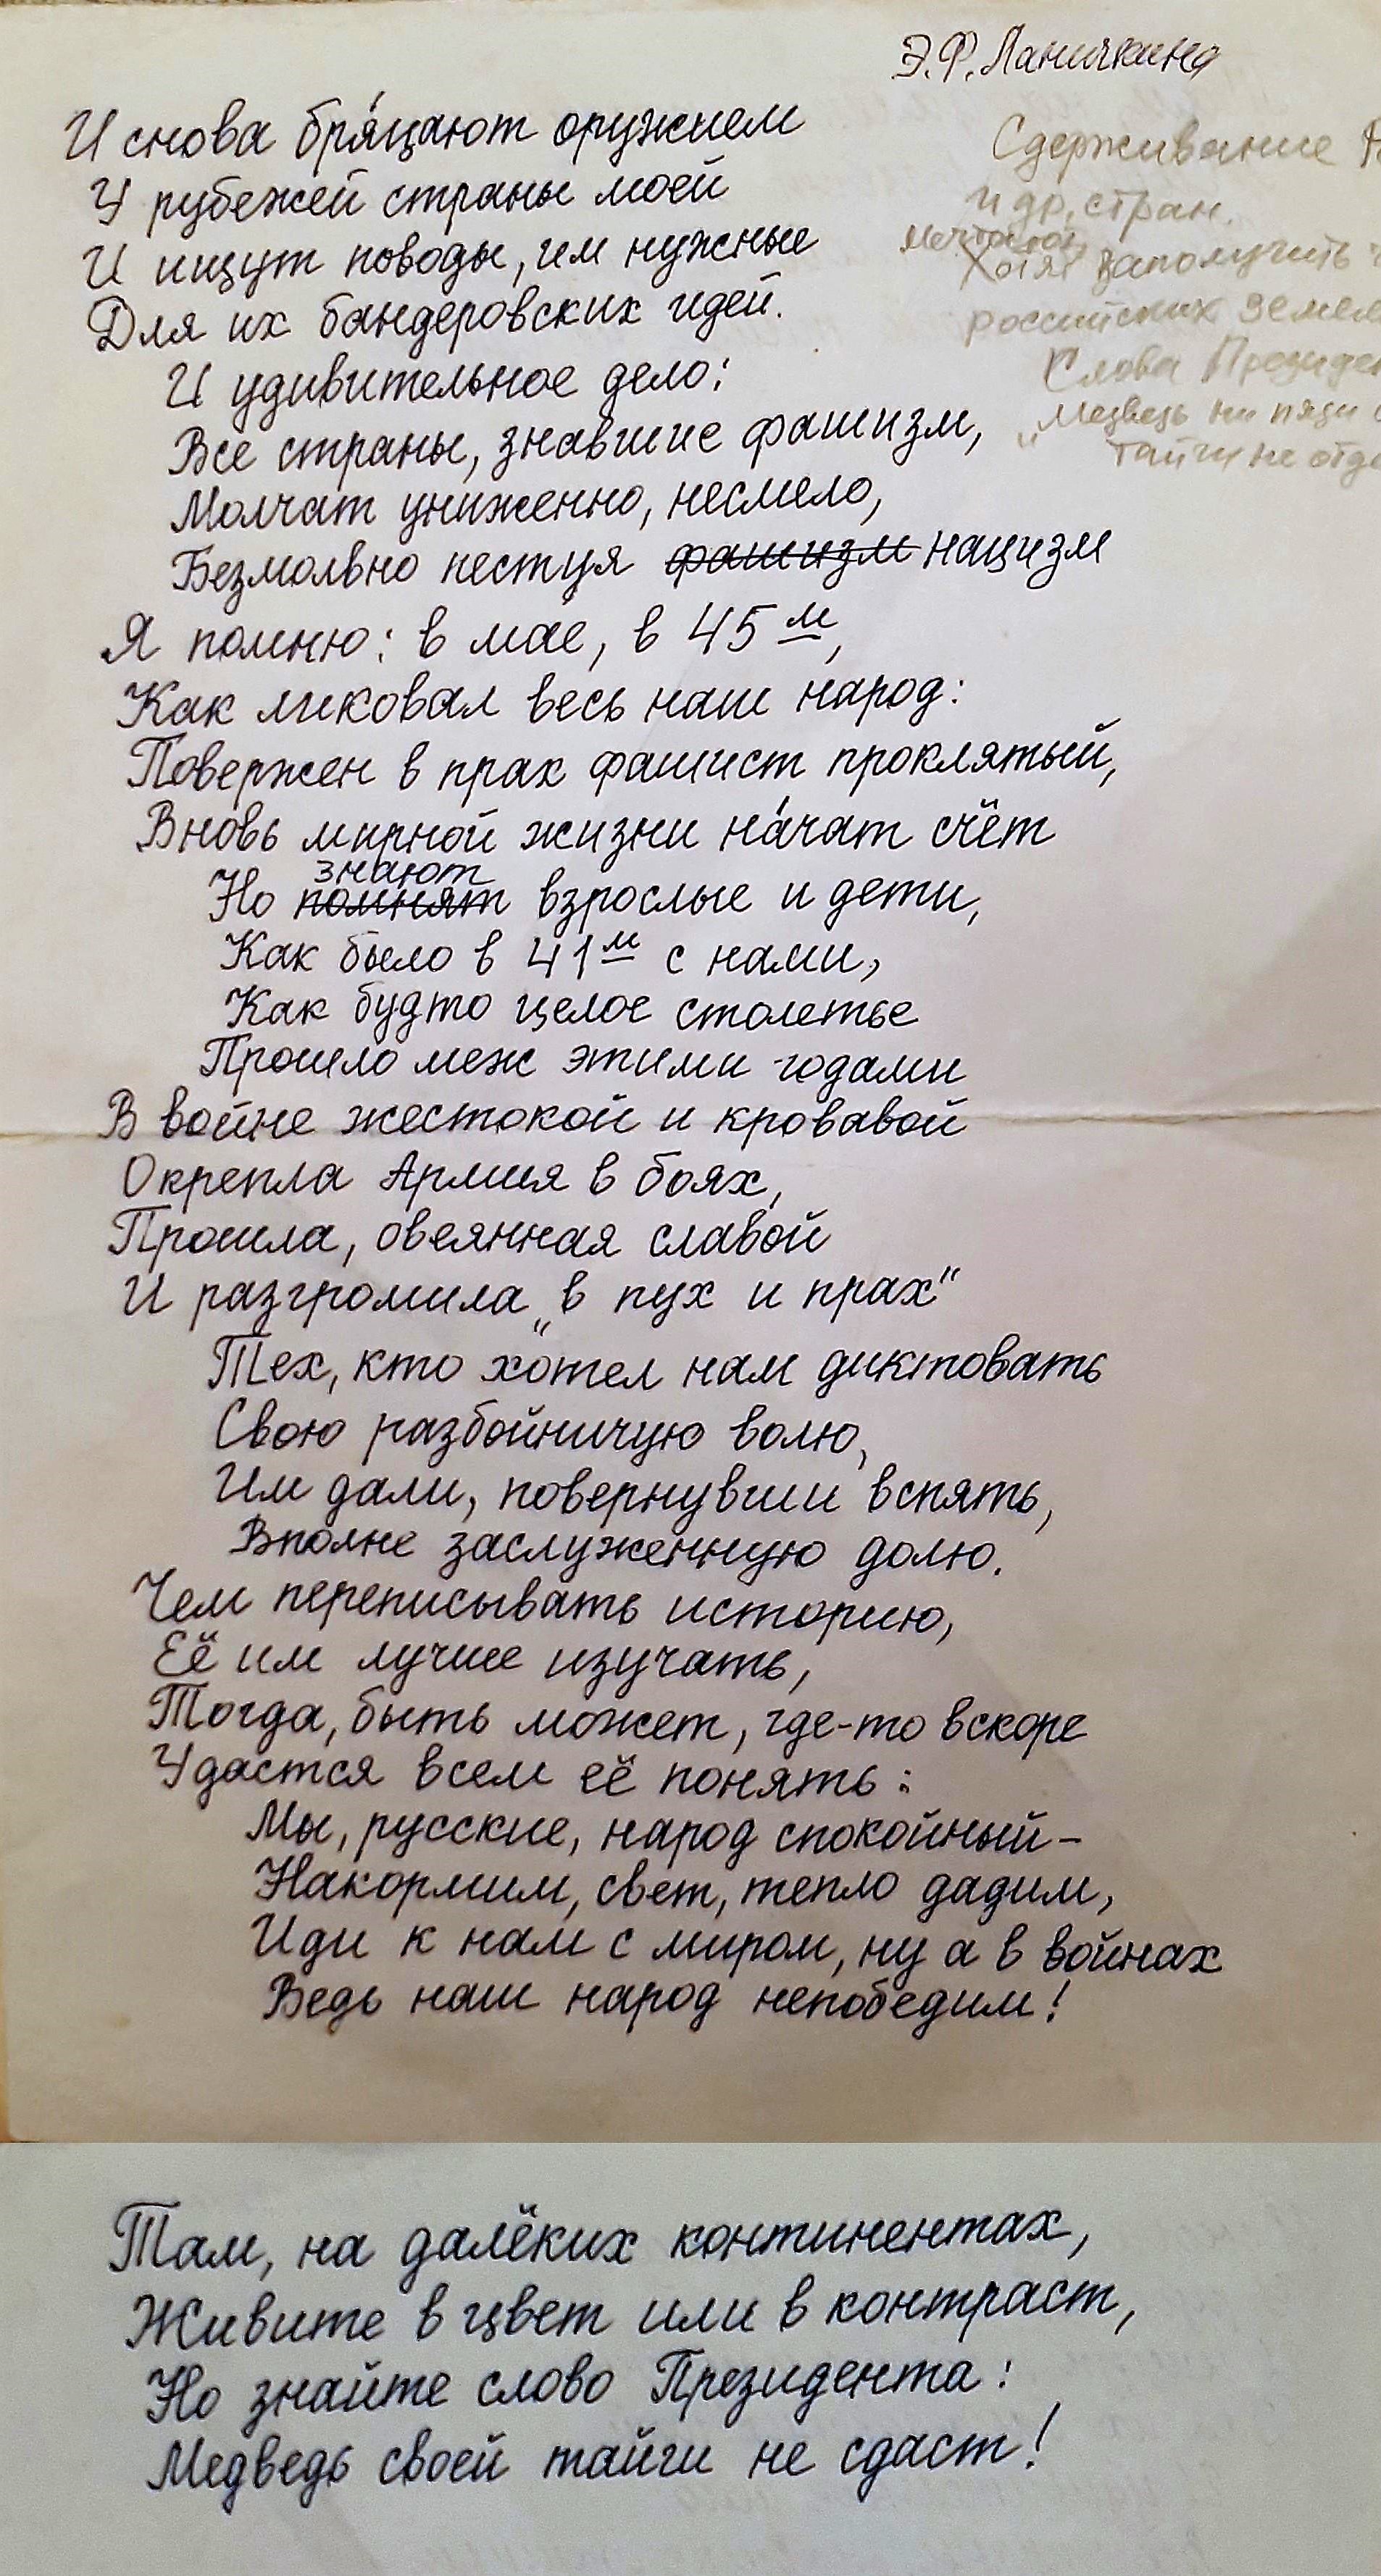 Э.Ф. Паничкина
И снова бря́цают оружием
У рубежей страны моей
И ищут поводы, им нужные
Для их бандеровских идей.
И удивительное дело:
Все страны, знавшие фашизм,
Молчат униженно, несмело,
Безмолвно пестуя фашизм нацизм
Я помню: в мае, в 45м,
Как ликовал весь наш народ:
Повержен в прах фашист проклятый,
Вновь мирной жизни на́чат счёт
знают
Но помнят взрослые и дети,
Как было в 41м с нами,
Как будто целое столетье
Прошло меж этими годами
В войне жестокой и кровавой
Окрепла Армия в боях,
Прошла, овеянная славой
И разгромила „в пух и прах"
Тех, кто хотел нам диктовать
Свою разбойничую волю,
Им дали, повернувши вспять,
Вполне заслуженную долю.
Чем переписывать историю,
Её им лучше изучать,
Тогда, быть может, где-то вскоре
Удастся всем её понять:
Мы, русские, народ спокойный –
Накормим, свет, тепло дадим,
Иди к нам с миром, ну а в войнах
Ведь наш народ непобедим!
Сдерживание
и др. стран.
Мечтают
Хотят заполучить
российских земель
Слова Президен
„Медведь ни пяди
тайги не отд
Там, на далёких континентах,
Живите в цвет или в контраст,
Но знайте слово Президента:
Медведь своей тайги не сдаст!